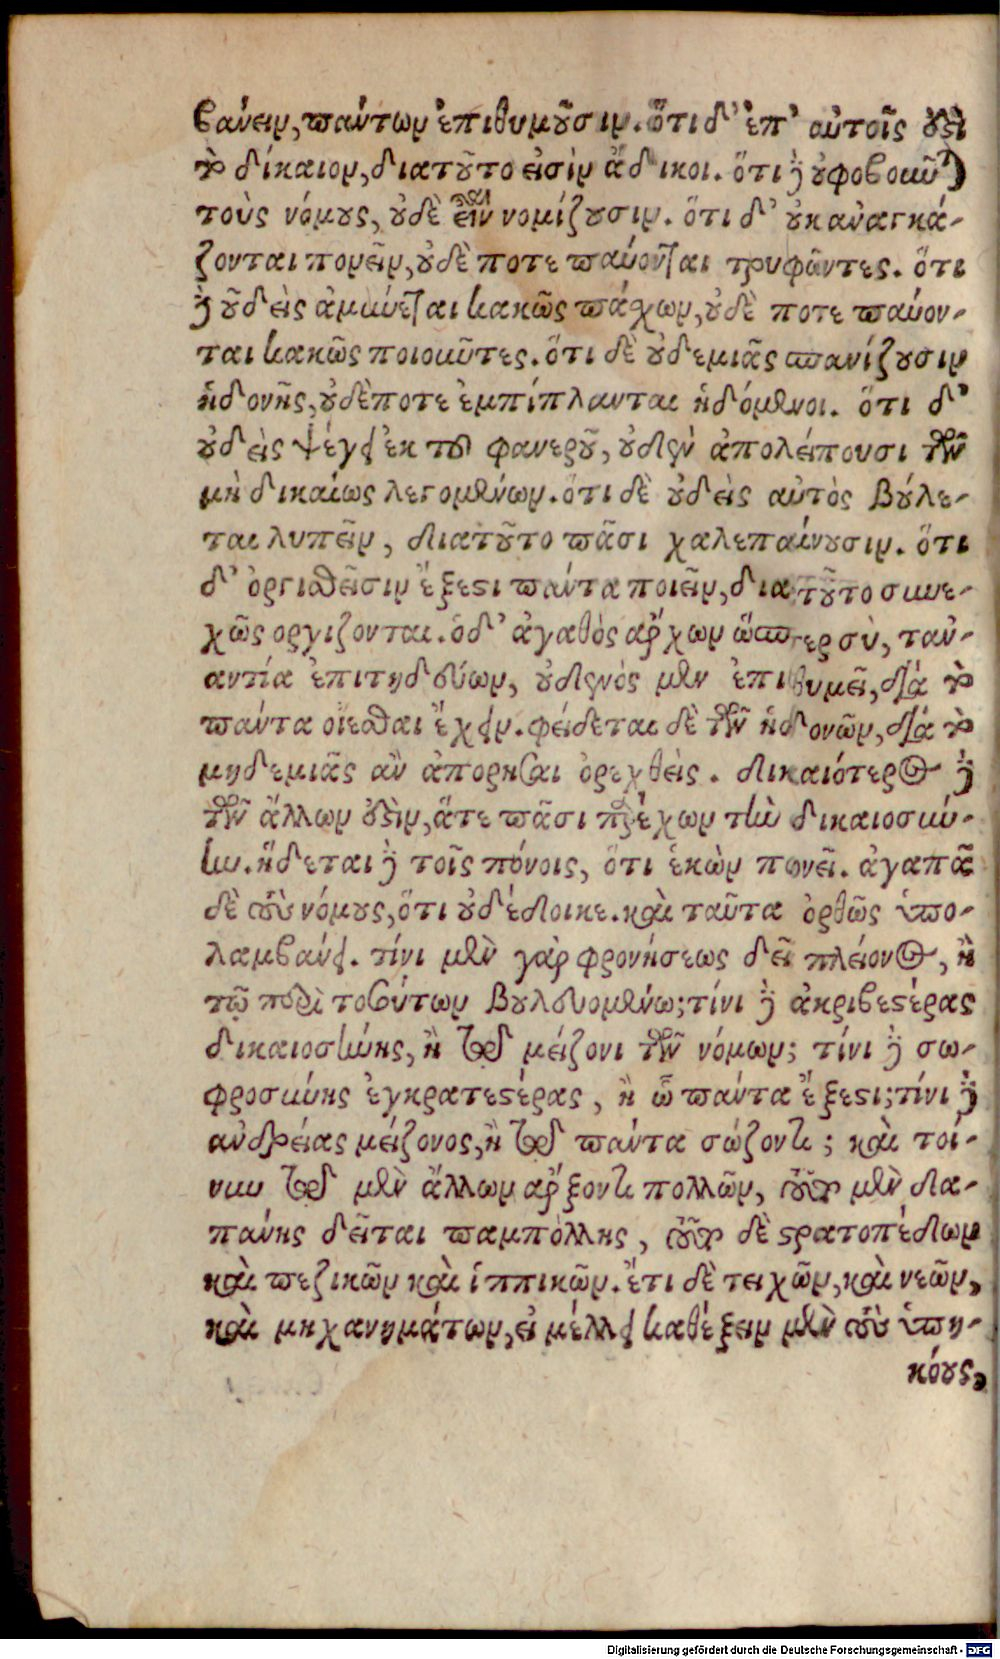 βάνειν, πάντων ἐπιθυμοῦσιν. ὅτι δ' ἐπ' αὐτοῖς ὀξὶ
τὸ δίκαιον, διατοῦτο εἰσὶν ἄδικοι. ὅτι δὲ οὐ φοβοῦνται
τοὺς νόμους, οὐδὲ εἶναι νομίζουσιν. ὅτι δ' οὐκ ἀναγκά-
ζονται πονεῖν, οὐδὲ ποτε παύονται τρυφῶντες. ὅτι
δὲ οὐδεὶς ἀμύνεται κακῶς πάσχων, οὐδὲ ποτε παύον-
ται κακῶς ποιοῦντες. ὅτι δὲ οὐδεμιᾶς σπανίζουσιν
ἡδονῆς, οὐδέποτε ἐμπίπλανται ἡδόμενοι. ὅτι δ'
οὐδεὶς ψέγει ἐκ τοῦ φανεροῦ, οὐδὲν ἀπολείπουσι τῶν
μὴ δικαίως λεγομένων. ὅτι δὲ οὐδεὶς αὐτὸς βούλε-
ται λυπεῖν, διατοῦτο πᾶσι χαλεπαίνουσιν. ὅτι
δ' ὀργισθεῖσιν ἔξεστι πάντα ποιεῖν, διατοῦτο συνε-
χῶς ὀργίζονται. ὁ δ' ἀγαθὸς ἄρχων ὥσπερ σὺ, ταν-
αντία ἐπιτηδεύων, οὐδενὸς μὲν ἐπιθυμεῖ, διὰ τὸ
πάντα οἴεσθαι ἔχειν. φείδεται δὲ τῶν ἡδονῶν, διὰ τὸ
μηδεμιᾶς ἂν ἀπορῆσαι ὀρεχθείς. δικαιότερος δὲ
τῶν ἄλλων ὀξὶν, ἅτε πᾶσι παρέχων τὴν δικαιοσύ-
νην. ἥδεται δὲ τοῖς πόνοις, ὅτι ἑκὼν πονεῖ. ἀγαπᾷ
δὲ τοὺς νόμους, ὅτι οὐ δέδοικε. καὶ ταῦτα ὀρθῶς ὑπο-
λαμβάνει. τίνι μὲν γὰρ φρονήσεως δεῖ πλείονος, ἢ
τῷ περὶ τοσούτων βουλευομένῳ; τίνι δὲ ἀκριβεστέρας
δικαιοσύνης, ἢ τῷ μείζονι τῶν νόμων; τίνι δὲ σω-
φροσύνης ἐγκρατεστέρας, ἢ ᾧ πάντα ἔξεστι; τίνι δὲ
ἀνδρείας μείζονος, ἢ τῷ πάντα σώζοντι; καὶ τοί-
νυν τῷ μὲν ἄλλων ἄρξοντι πολλῶν, τοῦτον μὲν δα-
πάνης δεῖται παμπόλλης, τοῦτον δὲ στρατοπέδων
καὶ πεζικῶν καὶ ἱππικῶν. ἔτι δὲ τειχῶν, καὶ νεῶν,
καὶ μηχανημάτων, εἰ μέλλει καθέξειν μὲν τοὺς ὑπη-
κόους,
Digitalisierung gefördert durch die Deutsche Forschungsgemeinschaft - DFG